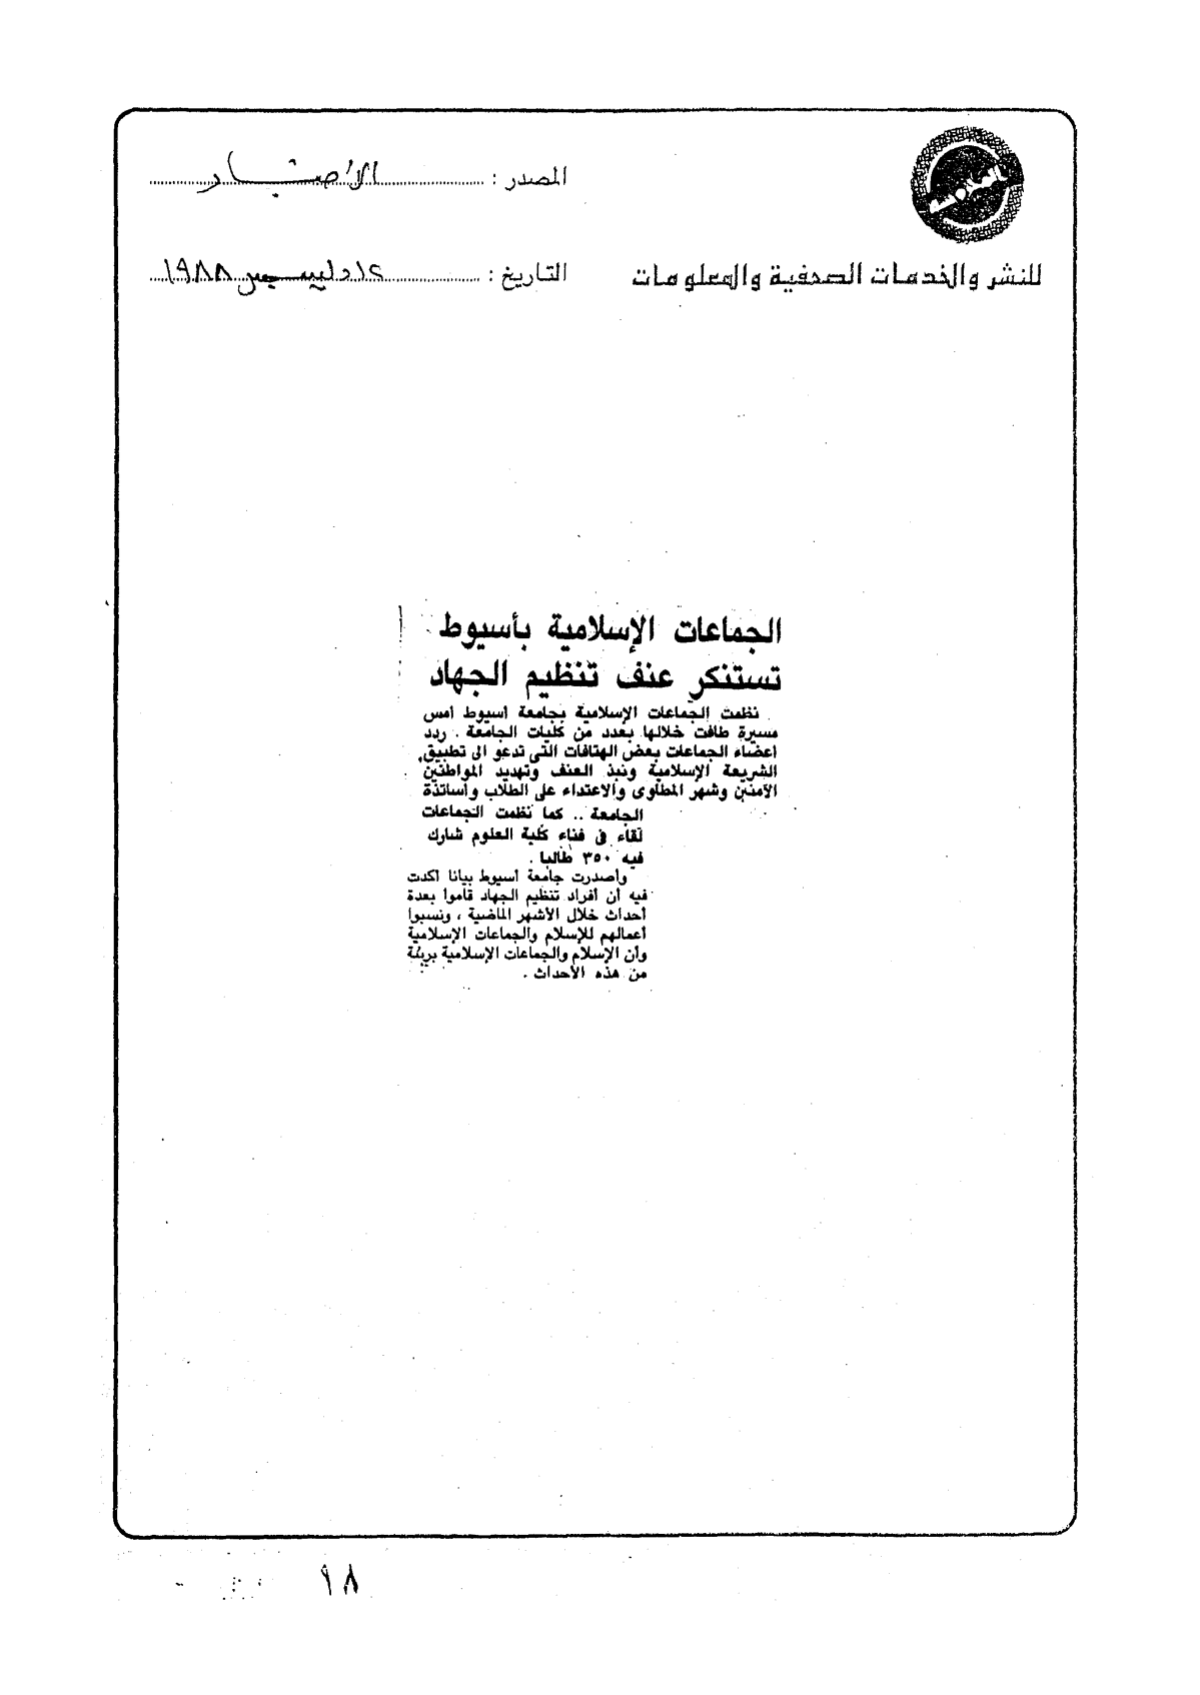 المصدر : الأخبار
للنشر والخدمات الصحفية والمعلومات
التاريخ : ١٤ ديسمبر ١٩٨٨
الجماعات الإسلامية بأسيوط
تستنكر عنف تنظيم الجهاد
نظمت الجماعات الإسلامية بجامعة أسيوط أمس
مسيرة طافت خلالها بعدد من كليات الجامعة . ردد
أعضاء الجماعات بعض الهتافات التى تدعو الى تطبيق
الشريعة الإسلامية ونبذ العنف وتهديد المواطنين
الآمنين وشهر المطاوى والاعتداء على الطلاب وأساتذة
الجامعة .. كما نظمت الجماعات
لقاء فى فناء كلية العلوم شارك
فيه ٣٥٠ طالبا .
وأصدرت جامعة أسيوط بيانا أكدت
فيه أن أفراد تنظيم الجهاد قاموا بعدة
أحداث خلال الأشهر الماضية ، ونسبوا
أعمالهم للإسلام والجماعات الإسلامية
وأن الإسلام والجماعات الإسلامية بريئة
من هذه الأحداث .
٩٨